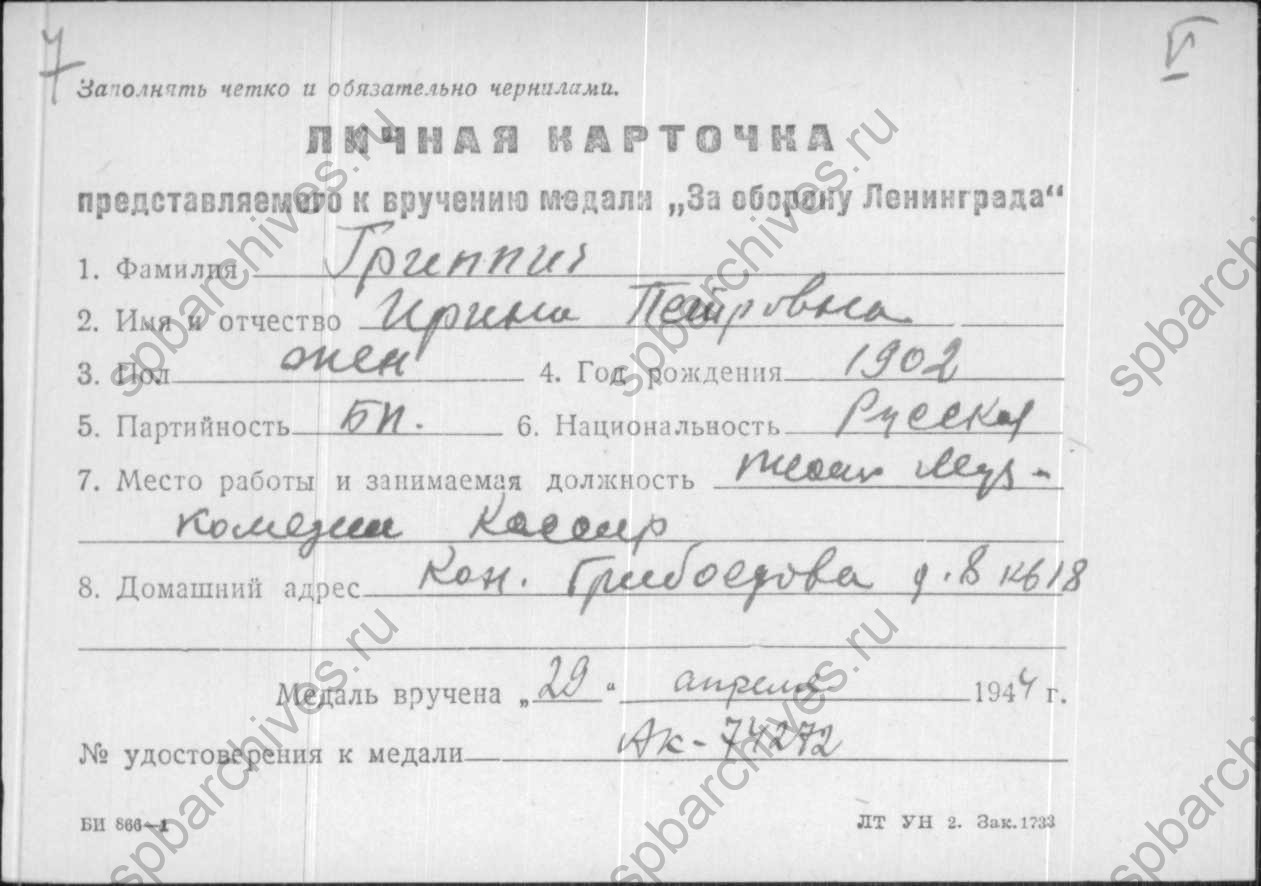 7
V
Заполнять четко и обязательно чернилами.
ЛИЧНАЯ КАРТОЧКА
представляемого к вручению медали „За оборону Ленинграда“
1. Фамилия Гриппич
2. Имя и отчество Ирина Петровна
3. Пол жен 4. Год рождения 1902
5. Партийность БП. 6. Национальность Русская
7. Место работы и занимаемая должность Муз-
комедии Кассир
8. Домашний адрес Кан. Грибоедова д. 8 кв 18
Медаль вручена „29“ апреля 1944 г.
№ удостоверения к медали Ак-74272
БИ 866—1 ЛТ УН 2. Зак.1733
spbarchives.ru
spbarchives.ru
spbarchives.ru
spbarchives.ru